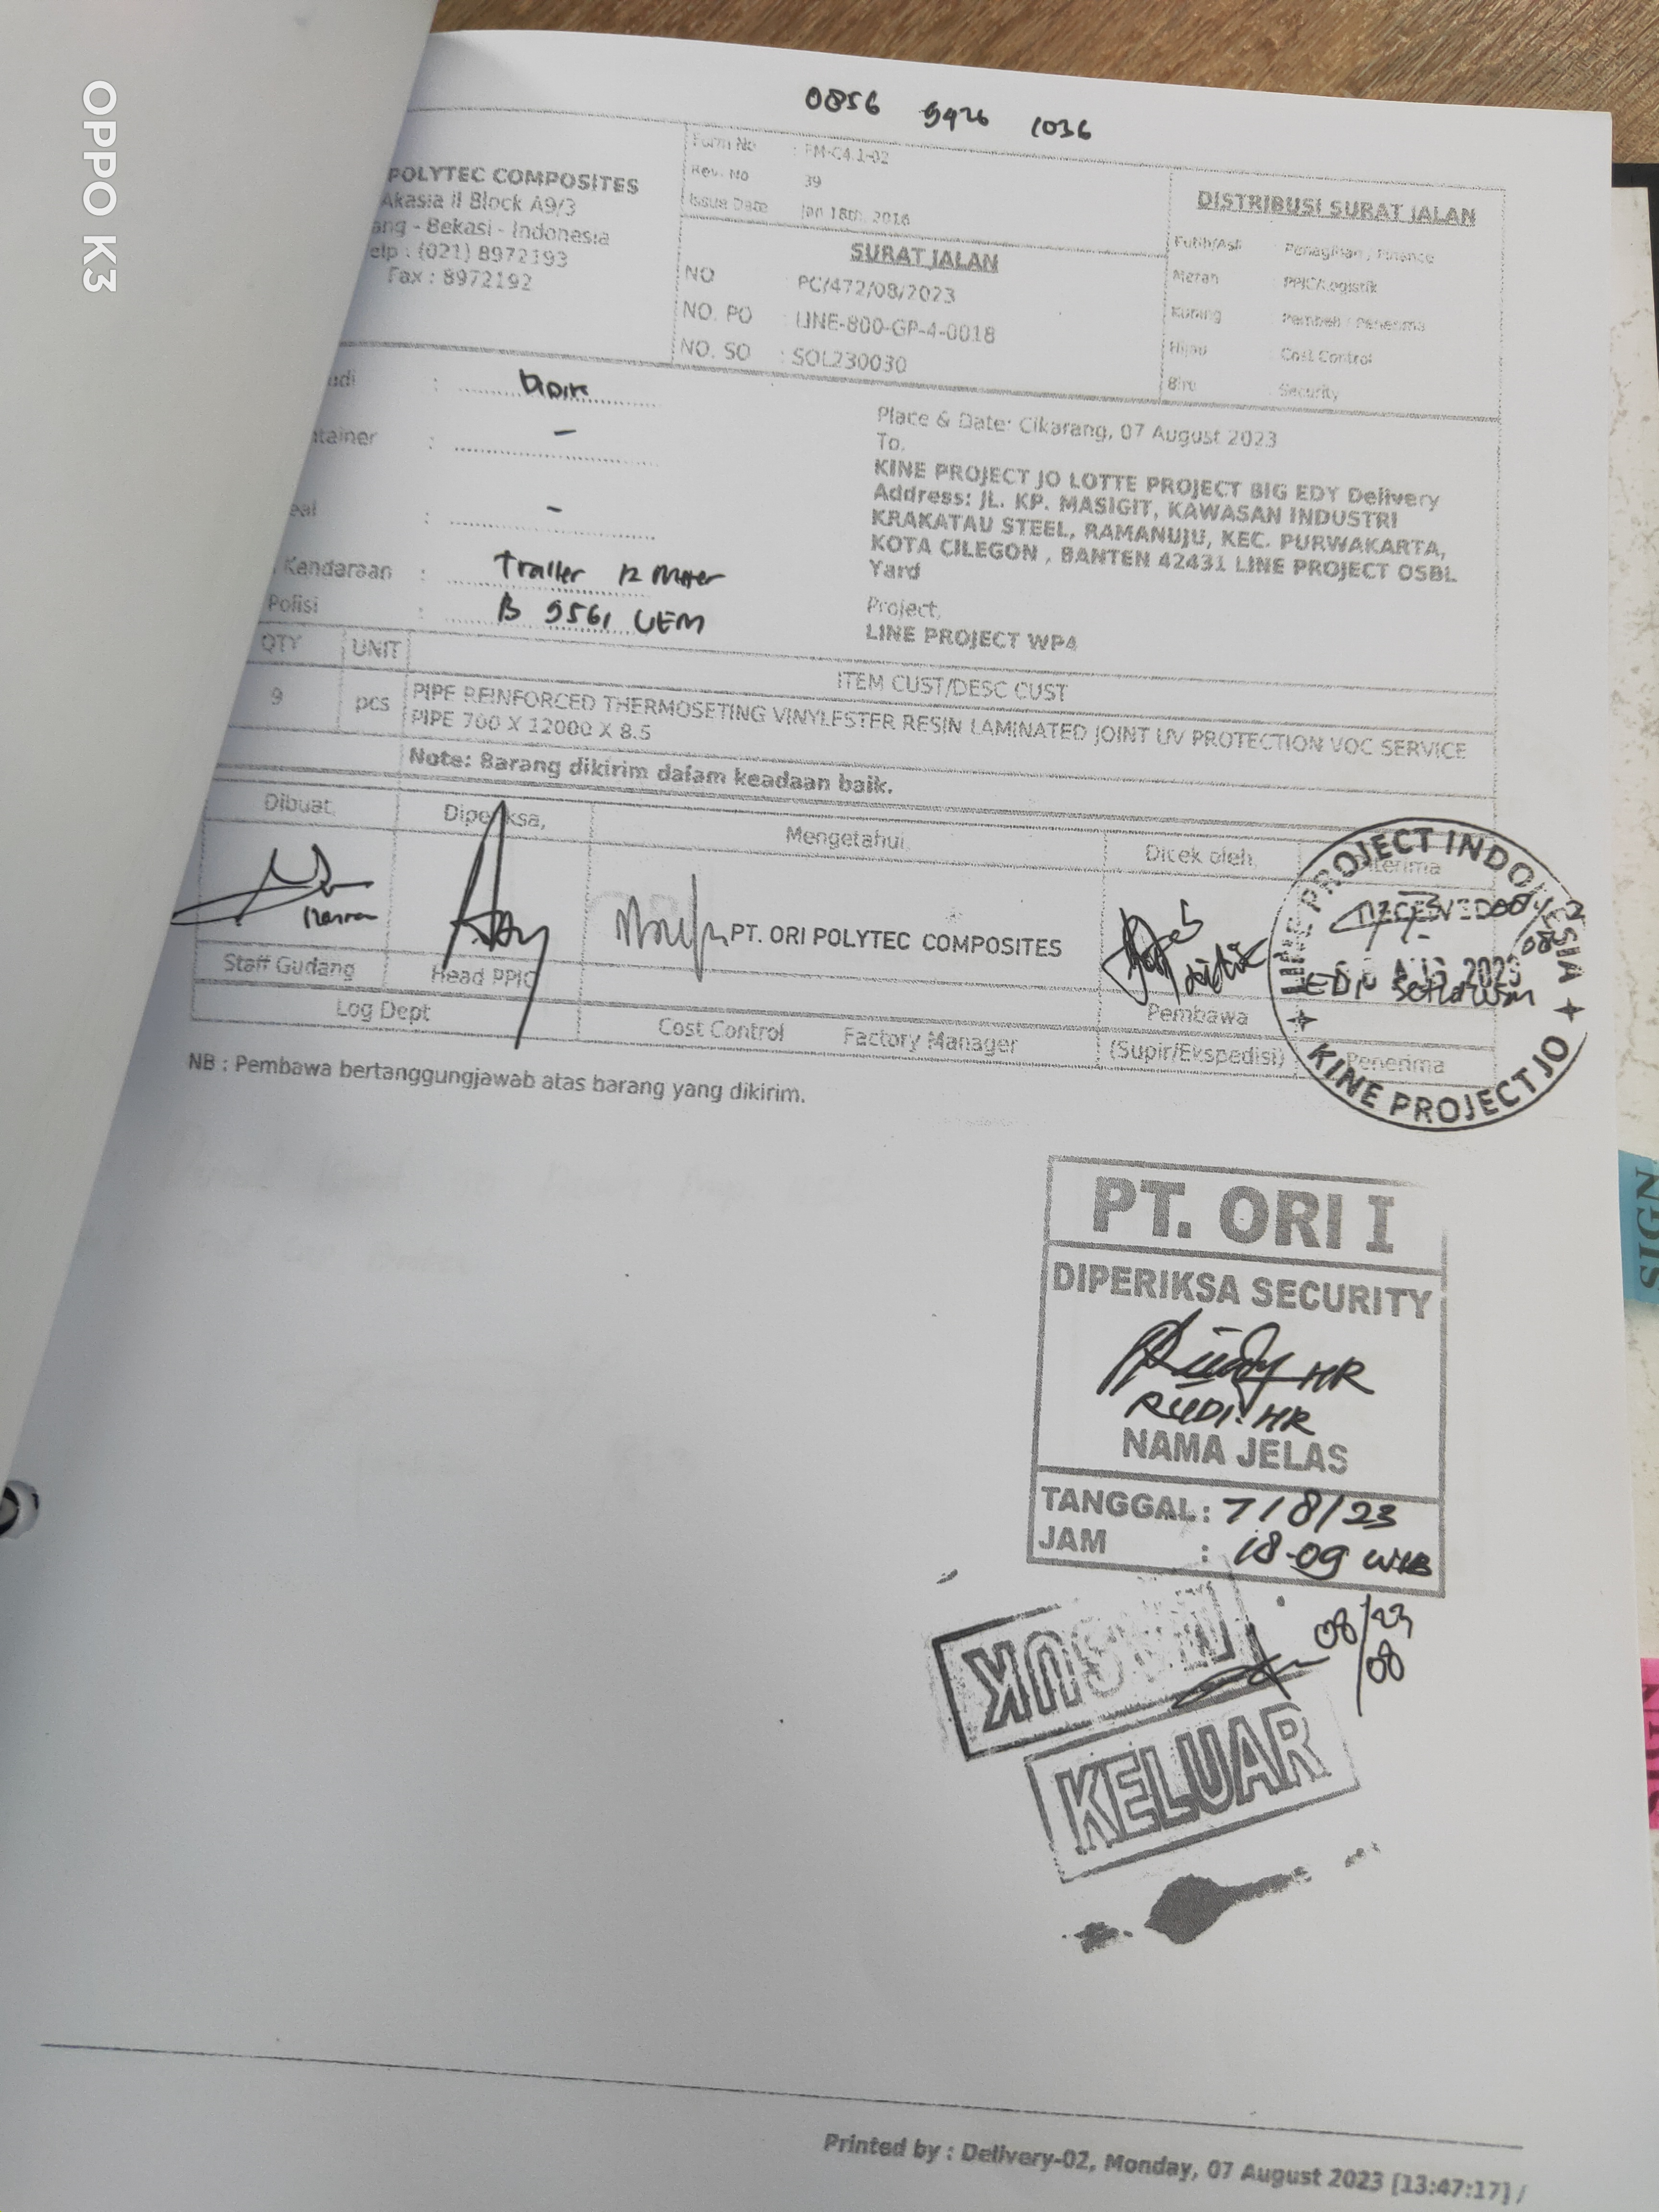 OPPO K3
0856 9926 1036
POLYTEC COMPOSITES
Akasia II Block A9/3
ang - Bekasi - Indonesia
elp : (021) 8972193
Fax : 8972192
Form No : FM-C4.1-02
Rev. No 39
Issue Date Jan 18th, 2016
SURAT JALAN
NO PC/472/08/2023
NO. PO LINE-800-GP-4-0018
NO. SO : SOL230030
DISTRIBUSI SURAT JALAN
Putih/Asli : Penagihan, Finance
Merah : PPIC/Logistik
Kuning : Pembeli / Penerima
Hijau : Cost Control
Biru : Security
udi :
ntainer : -
eal : -
Kendaraan : Trailer 12 Meter
Polisi : B 9561 UEM
Place & Date: Cikarang, 07 August 2023
To.
KINE PROJECT JO LOTTE PROJECT BIG EDY Delivery
Address: JL. KP. MASIGIT, KAWASAN INDUSTRI
KRAKATAU STEEL, RAMANUJU, KEC. PURWAKARTA,
KOTA CILEGON , BANTEN 42431 LINE PROJECT OSBL
Yard
Project,
LINE PROJECT WP4
QTY UNIT ITEM CUST/DESC CUST
9 pcs PIPE REINFORCED THERMOSETING VINYLESTER RESIN LAMINATED JOINT UV PROTECTION VOC SERVICE
PIPE 700 X 12000 X 8.5
Note: Barang dikirim dalam keadaan baik.
Dibuat, Diperiksa, Mengetahui, Dicek oleh, Diterima
PT. ORI POLYTEC COMPOSITES
LINE PROJECT INDONESIA
RECEIVED
AUG 2023
EDI Setiawan
KINE PROJECT JO
Staff Gudang Head PPIC Pembawa
Log Dept Cost Control Factory Manager (Supir/Ekspedisi) Penerima
NB : Pembawa bertanggungjawab atas barang yang dikirim.
PT. ORI I
DIPERIKSA SECURITY
RUDI. HR
NAMA JELAS
TANGGAL : 7/8/23
JAM : 18-09 WIB
MASUK
08/23
08
KELUAR
SIGN
Printed by : Delivery-02, Monday, 07 August 2023 [13:47:17] /